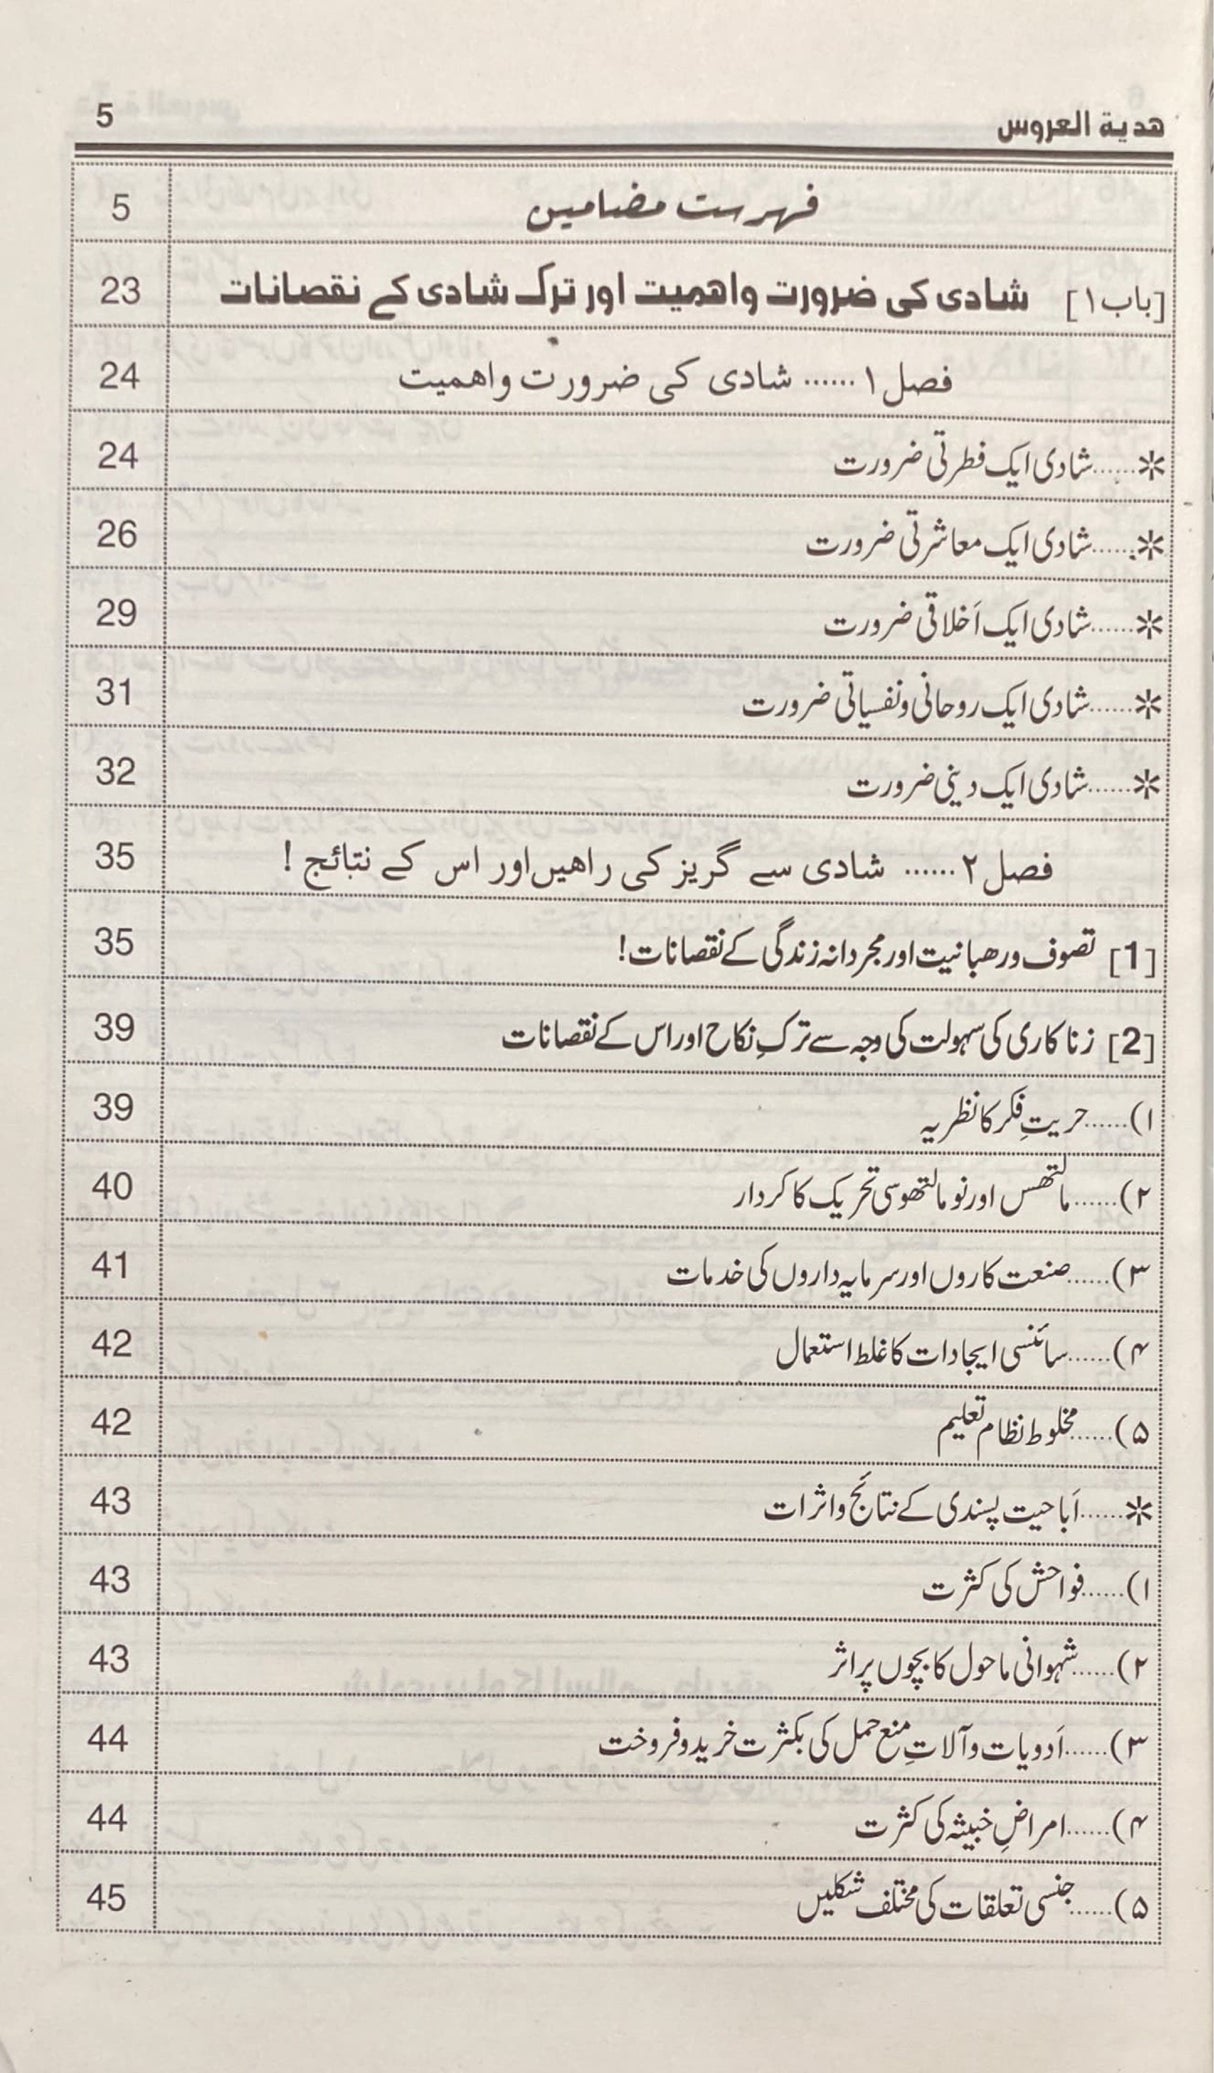 هدية العروس 5
فہرست مضامین 5
[باب ۱] شادی کی ضرورت واہمیت اور ترک شادی کے نقصانات 23
فصل ۱ ...... شادی کی ضرورت واہمیت 24
*......شادی ایک فطرتی ضرورت 24
*......شادی ایک معاشرتی ضرورت 26
*......شادی ایک اَخلاقی ضرورت 29
*......شادی ایک روحانی ونفسیاتی ضرورت 31
*......شادی ایک دینی ضرورت 32
فصل ۲ ...... شادی سے گریز کی راہیں اور اس کے نتائج ! 35
[1] تصوف ورھبانیت اور مجردانہ زندگی کے نقصانات! 35
[2] زنا کاری کی سہولت کی وجہ سے ترکِ نکاح اور اس کے نقصانات 39
۱)......حریتِ فکر کا نظریہ 39
۲)......مالتھس اور نو مالتھوسی تحریک کا کردار 40
۳)......صنعت کاروں اور سرمایہ داروں کی خدمات 41
۴)......سائنسی ایجادات کا غلط استعمال 42
۵)......مخلوط نظام تعلیم 42
*......اَباحیت پسندی کے نتائج واثرات 43
۱)......فواحش کی کثرت 43
۲)......شہوانی ماحول کا بچوں پر اثر 43
۳)......اَدویات وآلاتِ منع حمل کی بکثرت خرید وفروخت 44
۴)......امراضِ خبیثہ کی کثرت 44
۵)......جنسی تعلقات کی مختلف شکلیں 45